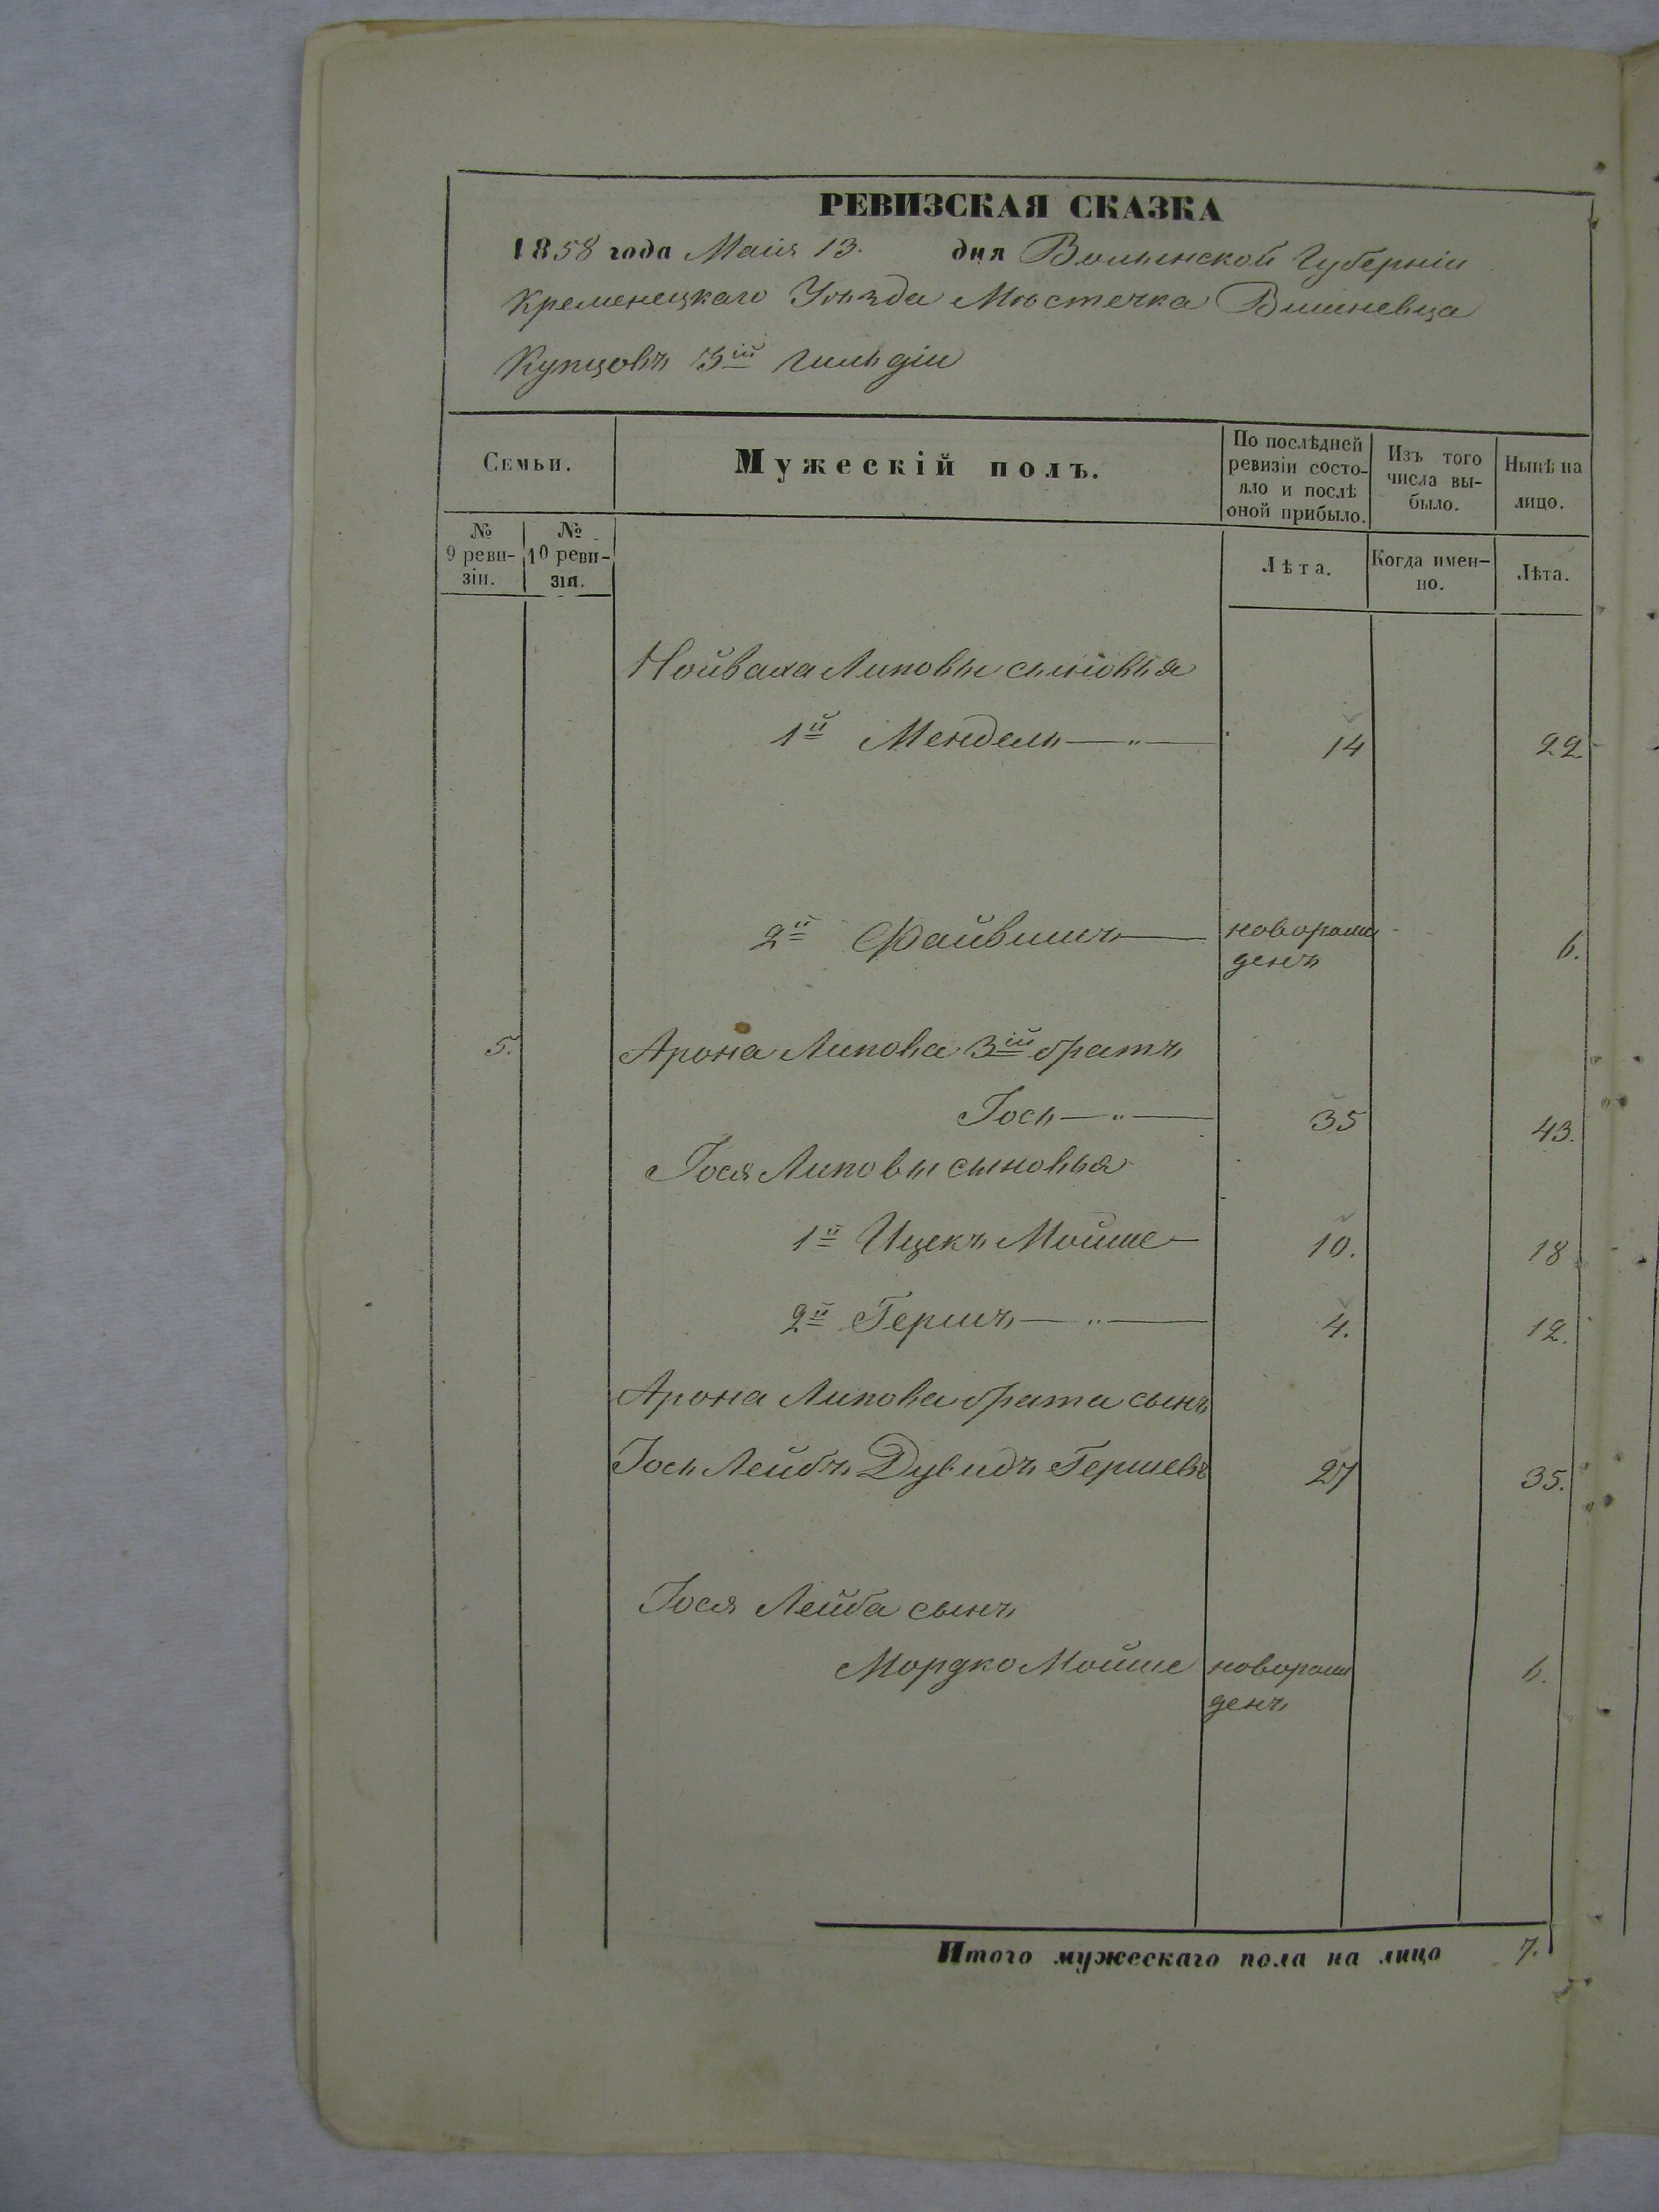 РЕВИЗСКАЯ СКАЗКА
1858 года Маія 13. дня Волынской Губерніи
Кременецкаго Уѣзда Мѣстечка Вишневца
Купцовъ 3ій гильдіи
Семьи. Мужескій полъ. По послѣдней ревизіи состояло и послѣ оной прибыло. Изъ того числа выбыло. Нынѣ на лицо.
№ 9 ревизіи. № 10 ревизіи. Лѣта. Когда именно. Лѣта.
Липовы сыновья
1й Мендель —„— 14 22
2й Файвишъ — новорожденъ 6.
5. Арона Липова 3ій братъ
Іось —„— 35 43.
Іося Липовы сыновья
1й Ицекъ Мойше — 10. 18
2й Гершъ —„— 4. 12.
Арона Липова брата сынъ
Іось Лейбъ Дувидъ Гершевъ 27 35.
Іося Лейба сынъ
Мордко Мойше новорожденъ 6.
Итого мужескаго пола на лицо 7.